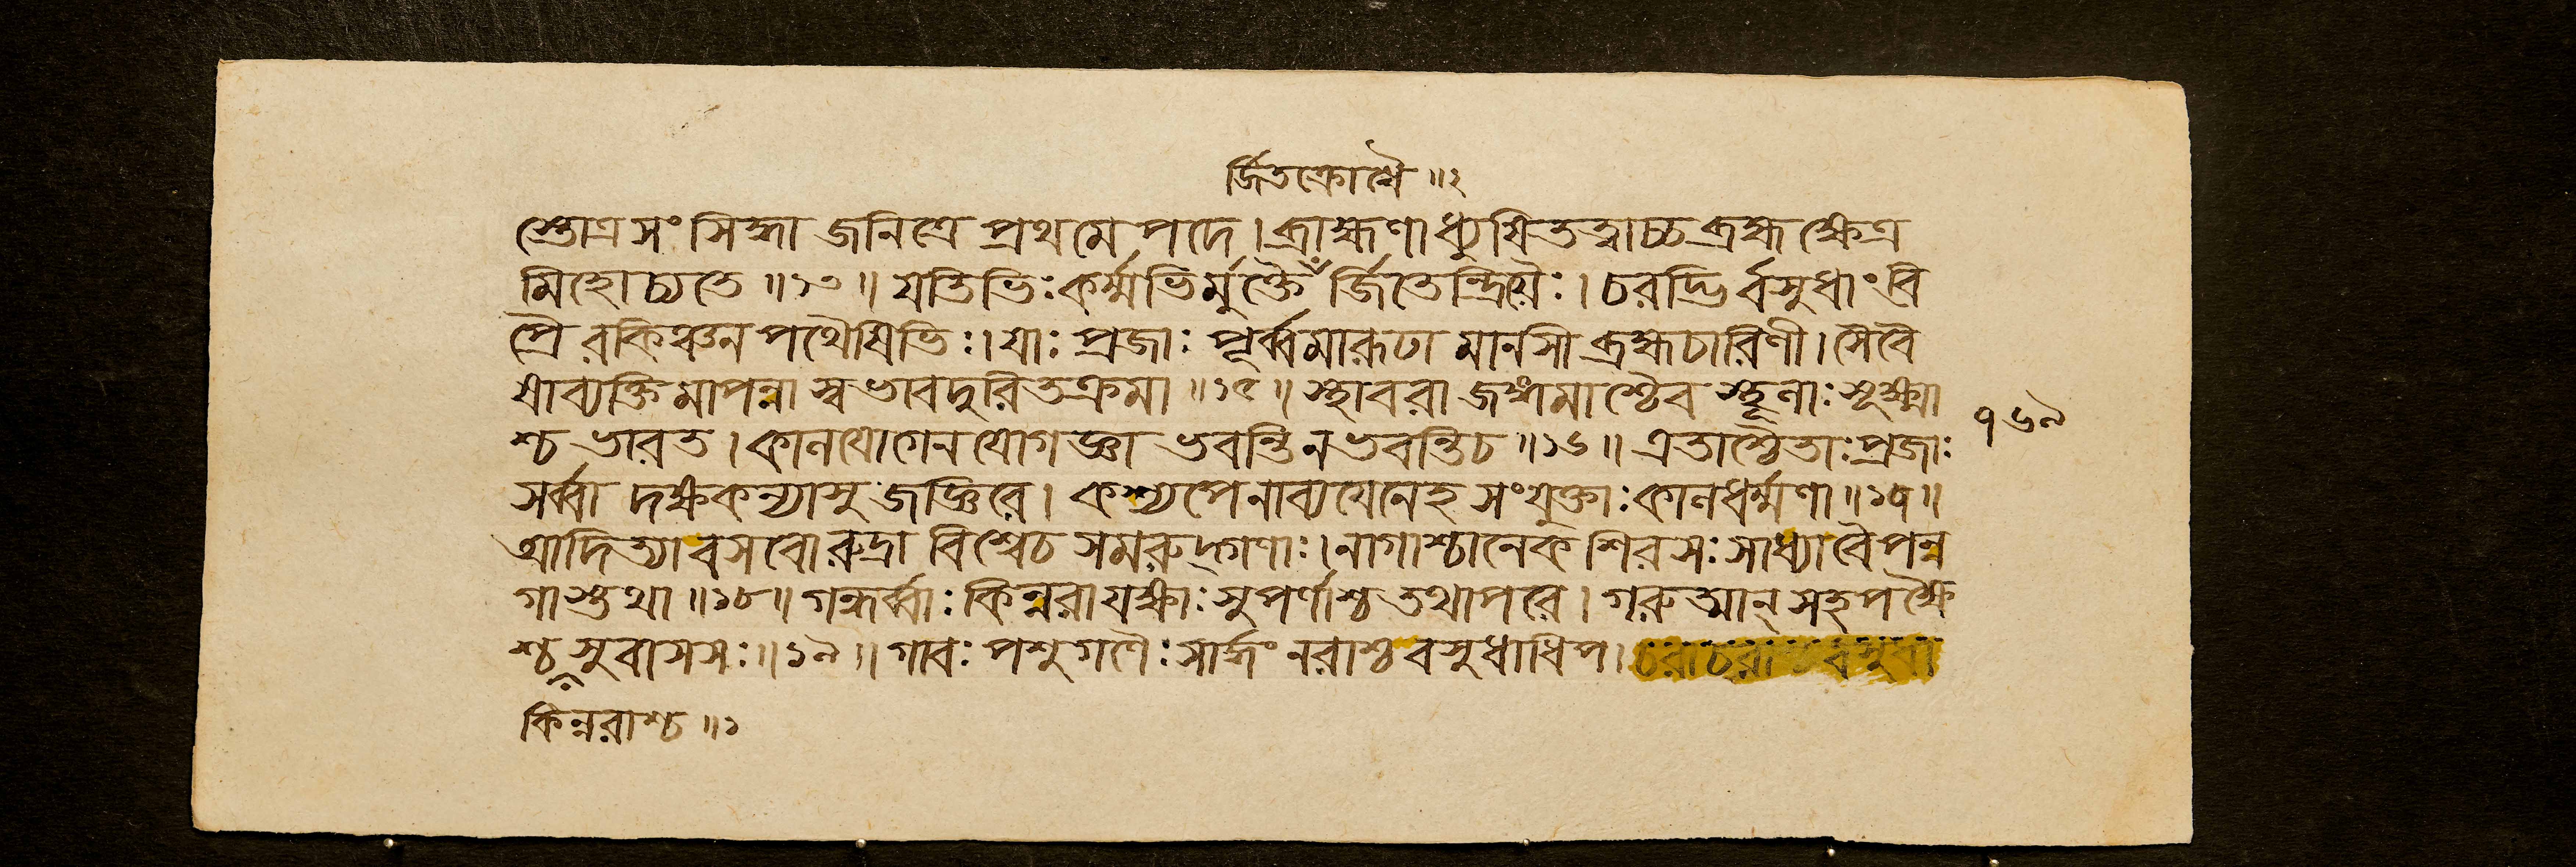 র্জিতক্রোধৈ ॥২
স্তোত্র সংসিদ্ধা জনিত্রে প্রথমে পদে । ব্রাহ্মণাধ্যুষিতত্বাচ্চ ব্রহ্মক্ষেত্র
মিহোচ্যতে ॥১৩॥ যতিভিঃ কর্ম্মভির্মুক্তৈ র্জিতেন্দ্রিয়ৈঃ । চরদ্ভির্বসুধাং বি
প্রৈরকিঞ্চনপথৈষিভিঃ । যাঃ প্রজাঃ পূর্ব্বমারূঢা মানসী ব্রহ্মচারিণী । সৈবৈ
ষা ব্যক্তিমাপন্না স্বভাবদুরতিক্রমা ॥১৫॥ স্থাবরা জঙ্গমাশ্চৈব স্থূলাঃ সূক্ষ্মা
শ্চ ভারত । কালযোগেন যোগজ্ঞা ভবন্তি ন ভবন্তি চ ॥১৬॥ এতাশ্চৈতাঃ প্রজাঃ
সর্ব্বা দক্ষকন্যাসু জজ্ঞিরে । কশ্যপেনাব্যয়েনেহ সংযুক্তাঃ কালধর্ম্মণা ॥১৭॥
আদিত্যা বসবো রুদ্রা বিশ্বে চ সমরুদ্গণাঃ । নাগাশ্চানেকশিরসঃ সাধ্যা বৈ পন্ন
গাস্তথা ॥১৮॥ গন্ধর্ব্বাঃ কিন্নরা যক্ষাঃ সুপর্ণাশ্চ তথাপরে । গরুত্মান্ সহ পক্ষৈ
শ্চ সুবাসসঃ ॥১৯॥ গাবঃ পশুগণৈঃ সার্দ্ধং নরাশ্চ বসুধাধিপ । চরাচরা
কিন্নরাশ্চ ॥১
১৬৯